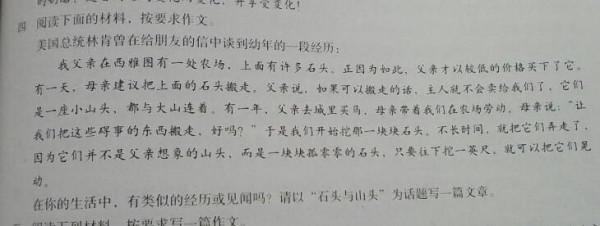 四 阅读下面的材料，按要求作文。
美国总统林肯曾在给朋友的信中谈到幼年的一段经历：
我父亲在西雅图有一处农场，上面有许多石头。正因为如此，父亲才以较低的价格买下了它。
有一天，母亲建议把上面的石头搬走。父亲说，如果可以搬走的话，主人就不会卖给我们了，它们
是一座小山头，都与大山连着。有一年，父亲去城里买马，母亲带着我们在农场劳动。母亲说：“让
我们把这些碍事的东西搬走，好吗？”于是我们开始挖那一块块石头。不长时间，就把它们弄走了，
因为它们并不是父亲想象的山头，而是一块块孤零零的石头，只要往下挖一英尺，就可以把它们晃
动。
在你的生活中，有类似的经历或见闻吗？请以“石头与山头”为话题写一篇文章。
阅读下列材料，按要求写一篇作文。